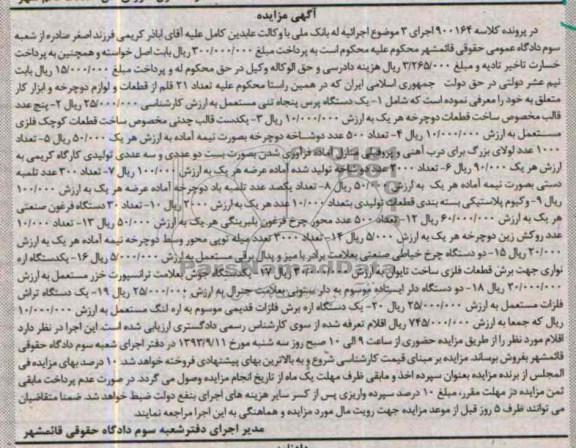 آگهی مزایده
در پرونده کلاسه ۹۰۰۱۶۴ اجرای ۳ موضوع اجرائیه له بانک ملی با وکالت عابدین کامل علیه آقای اباذر کریمی فرزند اصغر صادره از شعبه
سوم دادگاه عمومی حقوقی قائمشهر محکوم علیه محکوم است به پرداخت مبلغ ۳۰۰/۰۰۰/۰۰۰ ریال بابت اصل خواسته و همچنین به پرداخت
خسارت تاخیر تادیه و مبلغ ۳/۲۶۵/۰۰۰ ریال هزینه دادرسی و حق الوکاله وکیل در حق محکوم له و پرداخت مبلغ ۱۵/۰۰۰/۰۰۰ ریال بابت
نیم عشر دولتی در حق دولت جمهوری اسلامی ایران که در همین راستا محکوم علیه تعداد ۲۱ قلم از قطعات و لوازم دوچرخه و ابزار کار
متعلق به خود را معرفی نموده است که شامل ۱- یک دستگاه پرس پنجاه تنی مستعمل به ارزش کارشناسی ۲۵/۰۰۰/۰۰۰ ریال ۲- پنج عدد
قالب مخصوص ساخت قطعات دوچرخه هر یک به ارزش ۱۰/۰۰۰/۰۰۰ ریال ۳- یکدست قالب چدنی مخصوص ساخت قطعات کوچک فلزی
مستعمل به ارزش ۱۰/۰۰۰/۰۰۰ ریال ۴- تعداد ۵۰۰ عدد دوشاخه دوچرخه بصورت نیمه آماده به ارزش هر یک ۵۰/۰۰۰ ریال ۵- تعداد
۱۰۰۰ عدد لولای بزرگ برای درب آهنی و پروفیلی منازل آماده فرآوری شدن بصورت بست دو عددی و سه عددی تولیدی کارگاه کریمی به
ارزش هر یک ۹۰/۰۰۰ ریال ۶- تعداد ۴۰۰۰ عدد دوشاخه تولید شده آماده عرضه هر یک به ارزش ۱۰۰/۰۰۰ ریال ۷- تعداد ۳۰۰ عدد تلمبه
دستی بصورت نیمه آماده هر یک به ارزش ۵۰/۰۰۰ ریال ۸- تعداد یکصد عدد تلمبه باد دوچرخه آماده عرضه هر یک به ارزش ۱۰۰/۰۰۰
ریال ۹- وکیوم پلاستیکی بسته بندی قطعات تولیدی بتعداد ۱۰/۰۰۰ عدد هر یک به ارزش ۲۰۰۰ ریال ۱۰- تعداد ۳۰ دستگاه فرغون صنعتی
هر یک به ارزش ۶۰۰/۰۰۰ ریال ۱۲- تعداد ۵۰۰ عدد محور چرخ فرغون بلبرینگی هر یک به ارزش ۵۰/۰۰۰ ریال ۱۳- تعداد ۱۰/۰۰۰
عدد روکش زین دوچرخه هر یک به ارزش ۵/۰۰۰ ریال ۱۴- تعداد ۳۰۰۰ عدد میله توپی محور وسط دوچرخه نیمه آماده هر یک به ارزش
۲۰/۰۰۰ ریال ۱۵- دو دستگاه چرخ خیاطی صنعتی بعلامت برادر با میز و پدال برقی مستعمل به ارزش ۵/۰۰۰/۰۰۰ ریال ۱۶- یکدستگاه اره
نواری جهت برش قطعات فلزی ساخت تایوان به ارزش ریال ۱۷- یکدستگاه جوش بعلامت ترانسپورت خزر مستعمل به ارزش
۲۰/۰۰۰/۰۰۰ ریال ۱۸- دو دستگاه دلر ایستاده موسوم به دلر ستونی بعلامت جنرال به ارزش ۲۵/۰۰۰/۰۰۰ ریال ۱۹- یک دستگاه تراش
فلزات مستعمل به ارزش ۲۵/۰۰۰/۰۰۰ ریال ۲۰- یک دستگاه اره برش فلزات قدیمی موسوم به اره لنگ مستعمل به ارزش ۱۰/۰۰۰/۰۰۰
ریال که جمعا به ارزش ۷۴۵/۰۰۰/۰۰۰ ریال اقلام تعرفه شده از سوی کارشناس رسمی دادگستری ارزیابی شده است. این اجرا در نظر دارد
اقلام مورد نظر را از طریق مزایده حضوری از ساعت ۹ الی ۱۰ صبح روز سه شنبه مورخ ۱۳۹۳/۹/۱۱ در دفتر اجرای شعبه سوم دادگاه حقوقی
قائمشهر بفروش برساند. مزایده بر مبنای قیمت کارشناسی شروع و به بالاترین بهای پیشنهادی فروخته خواهد شد. ۱۰ درصد بهای مزایده فی
المجلس از برنده مزایده بعنوان سپرده اخذ و مابقی ظرف مهلت یک ماه از تاریخ انجام مزایده وصول می گردد. در صورت عدم پرداخت مابقی
ثمن مزایده در مهلت مقرر، مبلغ ۱۰ درصد سپرده واریزی پس از کسر سایر هزینه های اجرای بنفع دولت ضبط خواهد شد. ضمنا متقاضیان
می توانند ظرف ۵ روز قبل از موعد مزایده جهت رویت مال مورد مزایده و هماهنگی به این اجرا مراجعه نمایند.
مدیر اجرای دفتر شعبه سوم دادگاه حقوقی قائمشهر